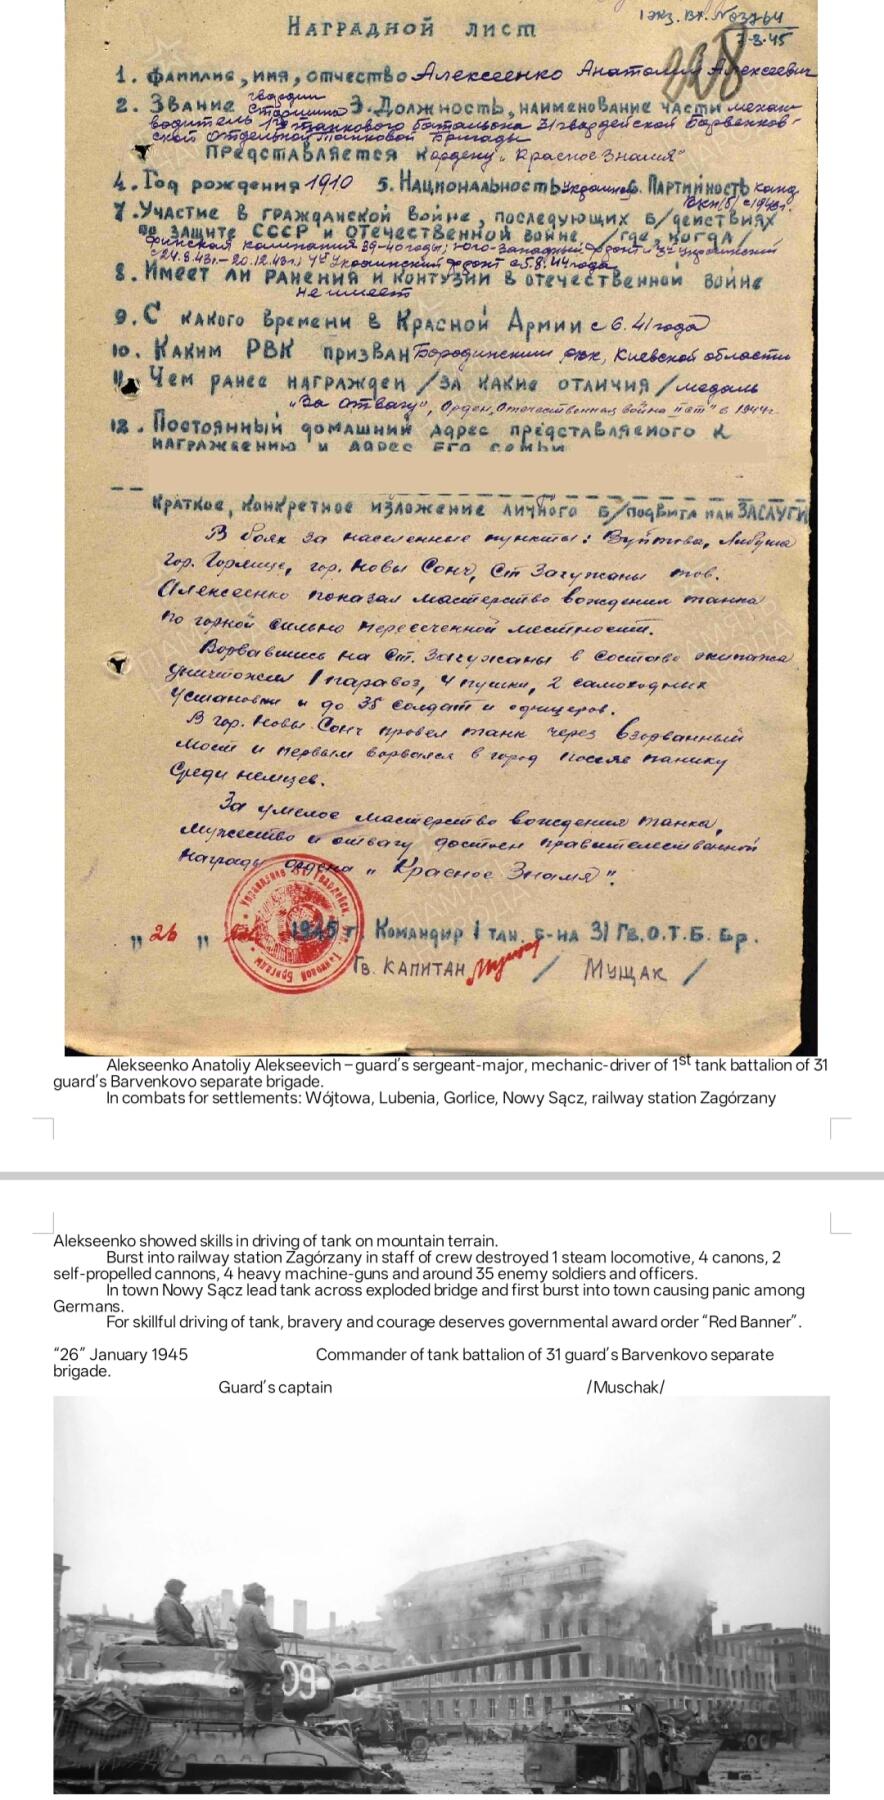 1 экз. Вх. №03764
7-3-45
НАГРАДНОЙ ЛИСТ
228
1. Фамилие, имя, отчество Алексеенко Анатолий Алексеевич
2. Звание гвардии старшина 3. Должность, наименование части механ
водитель 1го танкового батальона 31 гвардейской Барвенков-
ской отдельной танковой бригады
Представляется к ордену "Красное Знамя"
4. Год рождения 1910 5. Национальность украинец 6. Партийность канд.
7. Участие в гражданской войне, последующих б/действиях
по защите СССР и отечественной войне /где, когда/
Финская кампания 39-40 годы; Юго-Западный фронт и 3й Украинский
с 24.8.43г.-20.12.43г.; 4й Украинский фронт с 5.8.44 года
8. Имеет ли ранения и контузии в отечественной войне
не имеет
9. С какого времени в Красной Армии с 6.41 года
10. Каким РВК призван Бородинским рвк, Киевской области
11. Чем ранее награжден /за какие отличия/ медаль
"За отвагу", Орден Отечественная война "II ст" в 1944г.
12. Постоянный домашний адрес представляемого к
награждению и адрес его семьи
Краткое, конкретное изложение личного б/подвига или заслуги
В боях за населенные пункты: Вуйтова, Либуша
гор. Горлице, гор. Новы Сонч, Ст Загужаны тов.
Алексеенко показал мастерство вождения танка
по горной сильно пересеченной местности.
Ворвавшись на Ст. Загужаны в составе экипажа
уничтожил 1 паравоз, 4 пушки, 2 самоходных
установки и до 35 солдат и офицеров.
В гор. Новы Сонч провел танк через взорванный
мост и первым ворвался в город посеяв панику
среди немцев.
За умелое мастерство вождения танка,
мужество и отвагу достоин правительственной
награды ордена "Красное Знамя".
"26" 1945 г. Командир 1 тан. б-на 31 Гв.О.Т.Б. Бр.
Гв. капитан / Мущак /
Alekseenko Anatoliy Alekseevich – guard's sergeant-major, mechanic-driver of 1st tank battalion of 31
guard's Barvenkovo separate brigade.
In combats for settlements: Wójtowa, Lubenia, Gorlice, Nowy Sącz, railway station Zagórzany
Alekseenko showed skills in driving of tank on mountain terrain.
Burst into railway station Zagórzany in staff of crew destroyed 1 steam locomotive, 4 canons, 2
self-propelled cannons, 4 heavy machine-guns and around 35 enemy soldiers and officers.
In town Nowy Sącz lead tank across exploded bridge and first burst into town causing panic among
Germans.
For skillful driving of tank, bravery and courage deserves governmental award order "Red Banner".
"26" January 1945 Commander of tank battalion of 31 guard's Barvenkovo separate
brigade.
Guard's captain /Muschak/
09